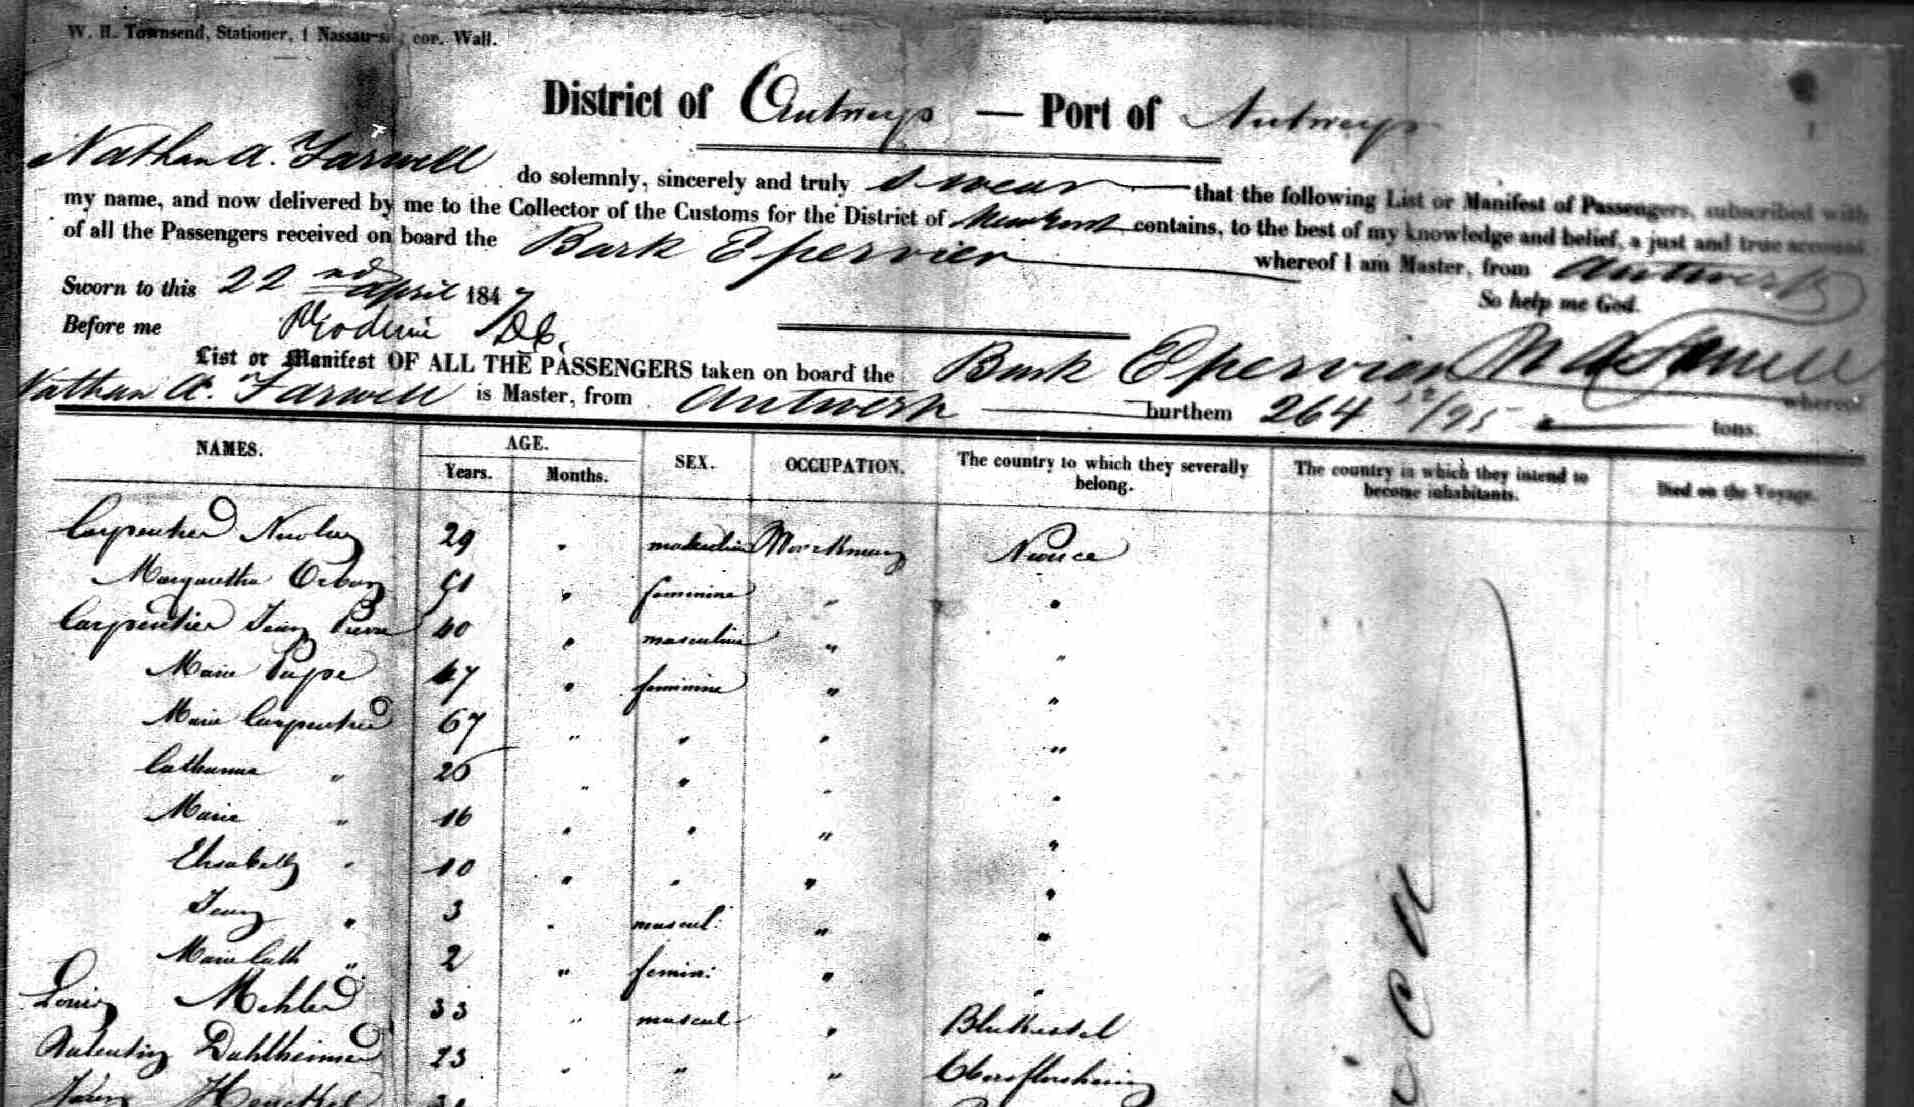 W. H. Townsend, Stationer, 1 Nassau-st. cor. Wall.
District of Antwerp — Port of Antwerp
Nathan A. Farwell do solemnly, sincerely and truly swear that the following List or Manifest of Passengers, subscribed with
my name, and now delivered by me to the Collector of the Customs for the District of New York contains, to the best of my knowledge and belief, a just and true account
of all the Passengers received on board the Bark Epervier whereof I am Master, from Antwerp
Sworn to this 22nd April 1847 So help me God.
Before me
List or Manifest OF ALL THE PASSENGERS taken on board the Bark Epervier N A Farwell whereof
Nathan A. Farwell is Master, from Antwerp burthem 264 /95 tons.
NAMES. AGE. Years. Months. SEX. OCCUPATION. The country to which they severally belong. The country in which they intend to become inhabitants. Died on the Voyage.
Carpentier Nicolas 29 " masculin Workman
Margaretha Orban " feminine " "
Carpentier Jean Pierre 40 " masculine " "
Marie Pape 47 " feminine " "
Marie Carpentier 67 " " " "
Catharina " 26 " " " "
Marie " 16 " " " "
Elisabeth " 10 " " " "
Jean " 3 " mascul: " "
Marie Cath " 2 " femin: " "
Louis Mehler 33 " mascul "
Valentin Dahlheimer 23 " " " Oberflorsheim
Henckel